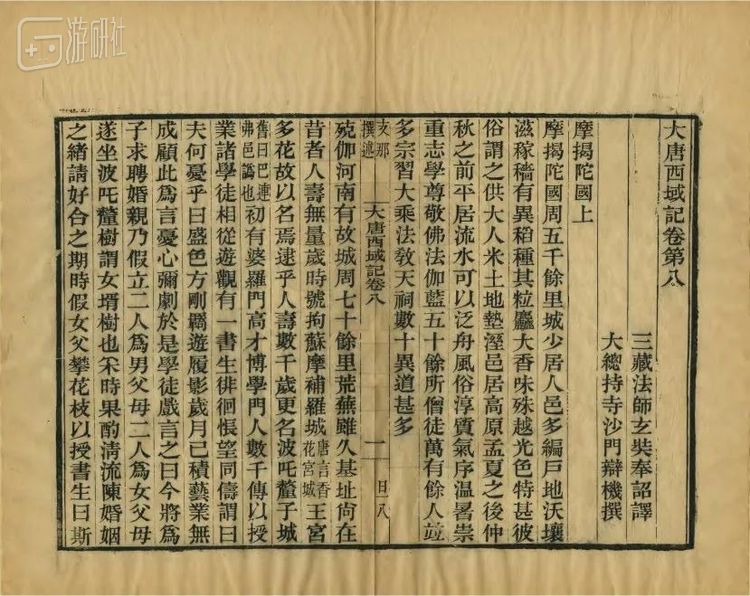 游研社
大唐西域記卷第八
三藏法師玄奘奉詔譯
大總持寺沙門辯機撰
摩揭陀國上
摩揭陀國周五千餘里城少居人邑多編戶地沃壤
滋稼穡有異稻種其粒麤大香味殊越光色特甚彼
俗謂之供大人米土地墊溼邑居高原孟夏之後仲
秋之前平居流水可以泛舟風俗淳質氣序温暑崇
重志學尊敬佛法伽藍五十餘所僧徒萬有餘人竝
多宗習大乘法教天祠數十異道甚多
支那
撰述
大唐西域記卷八
一
日八
殑伽河南有故城周七十餘里荒蕪雖久基址尚在
昔者人壽無量歲時號拘蘇摩補羅城唐言香花宮城王宮
多花故以名焉逮乎人壽數千歲更名波吒釐子城
舊曰巴連弗邑譌也初有婆羅門高才博學門人數千傳以授
業諸學徒相從遊觀有一書生徘徊悵望同儔謂曰
夫何憂乎曰盛色方剛羈遊履影歲月已積藝業無
成顧此為言憂心彌劇於是學徒戲言之曰今將為
子求聘婚親乃假立二人為男父母二人為女父母
遂坐波吒釐樹謂女壻樹也采時果酌清流陳婚姻
之緒請好合之期時假女父攀花枝以授書生曰斯